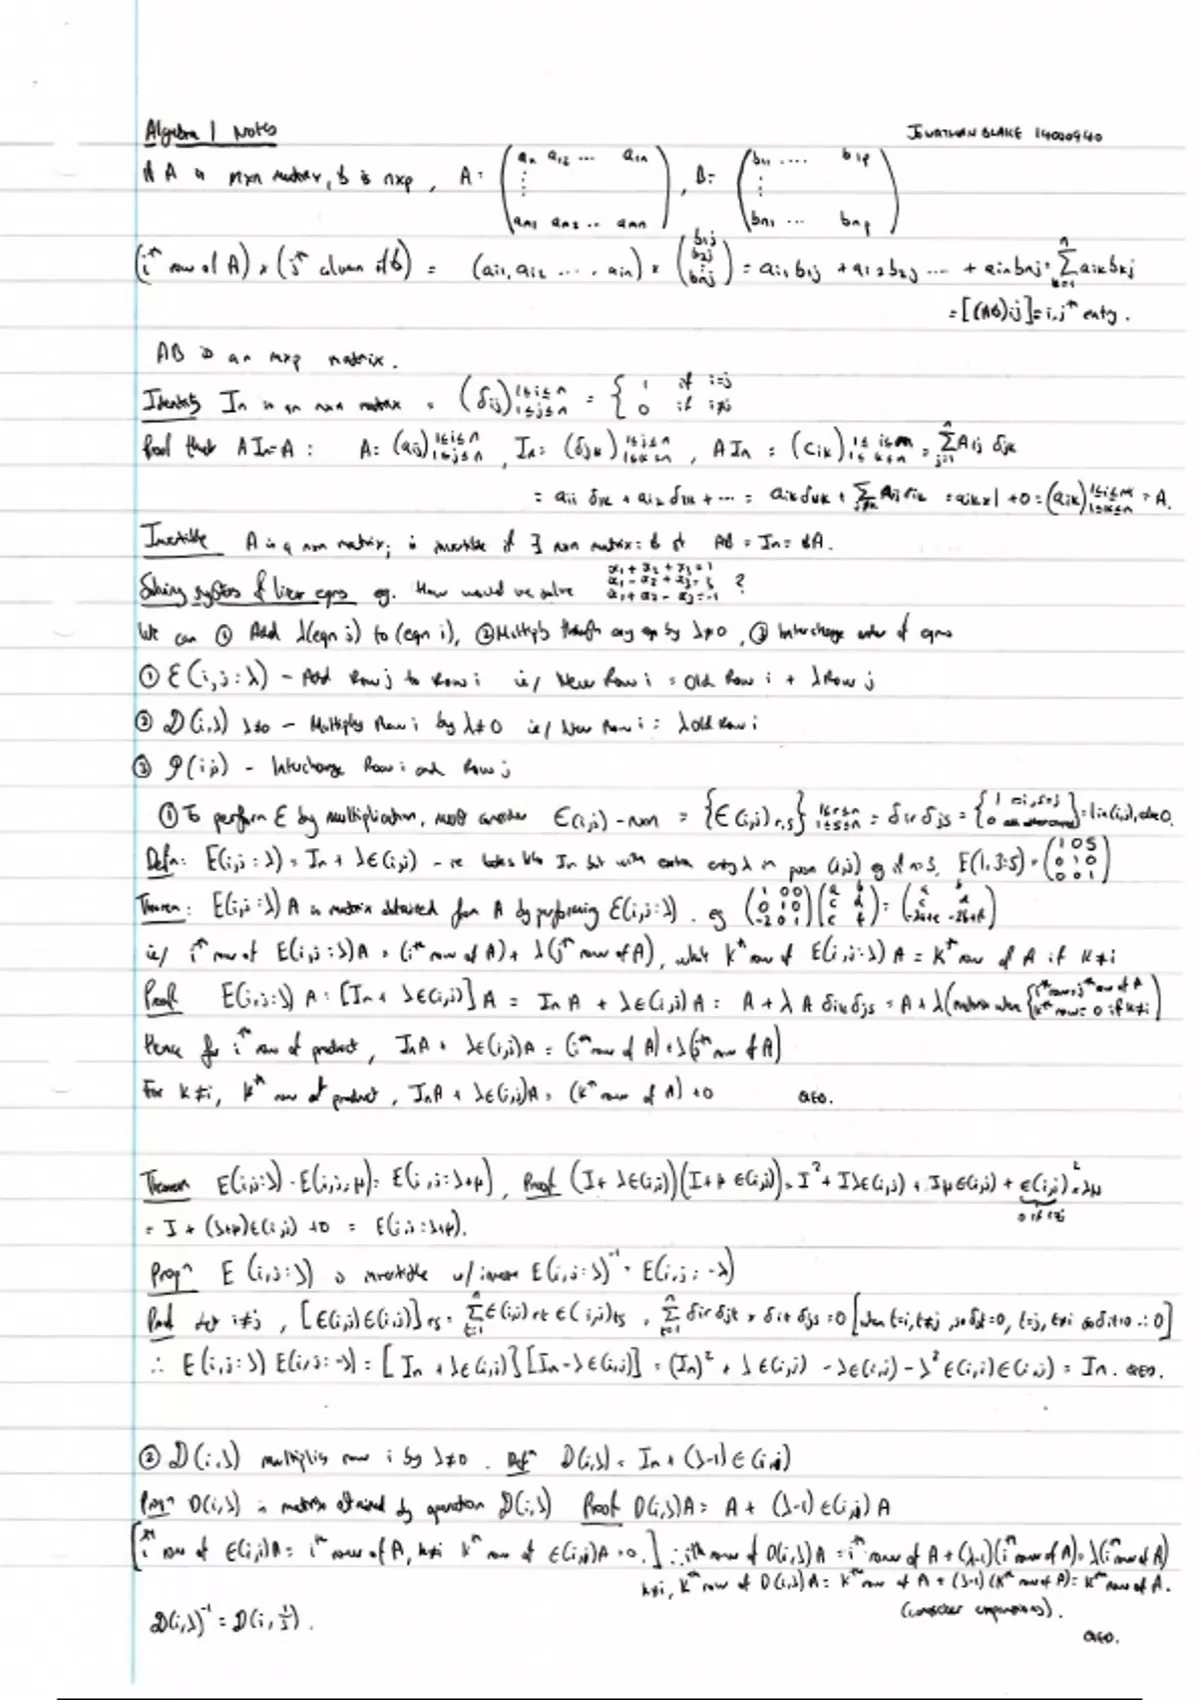 Algebra 1 Notes
JONATHAN BLAKE 14000940
If A is mxn matrix, B is nxp, A = (a11 a12 ... a1n ⋮ am1 am2 .. amn), B = (b11 .... b1p ⋮ bn1 ... bnp)
(i^th row of A) x (j^th column of B) = (ai1, ai2 .... , ain) x (b1j b2j ⋮ bnj) = ai1 b1j + ai2 b2j .... + ain bnj = Σ_{k=1}^n aik bkj
= [(AB)ij] = i,j^th entry.
AB is an mxp matrix.
Identity In is an nxn matrix = (δij) 1≤i≤n 1≤j≤n = { 1 if i=j 0 if i≠j
Proof that AIn=A : A = (aij) 1≤i≤n 1≤j≤n , In = (δjk) 1≤j≤n 1≤k≤n , AIn = (cik) 1≤i≤m 1≤k≤n = Σ_{j=1}^n Aij δjk
= ai1 δ1k + ai2 δ2k + ... = aik δkk + Σ_{j≠k} aij δjk = aik x 1 + 0 = (aik) 1≤i≤m 1≤k≤n = A.
Invertible A is a nxn matrix; is invertible if ∃ nxn matrix = B st AB = In = BA.
Solving systems of linear eqns eg. How would we solve x1 + x2 + x3 = 1 x1 - x2 + x3 = 3 x1 + x2 - x3 = -1 ?
We can ① Add λ(eqn j) to (eqn i), ② Multiply through any eqn by λ≠0, ③ Interchange order of eqns
① ℰ(i,j:λ) - Add Row j to Row i ie/ New Row i = Old Row i + λ Row j
② 𝒟(i,λ) λ≠0 - Multiply Row i by λ≠0 ie/ New Row i = λ old Row i
③ 𝒫(i,j) - Interchange Row i and Row j
① To perform ℰ by multiplication, must consider ∈(i,j) - nxn = {∈(i,j) r,s} 1≤r≤n 1≤s≤n = δir δjs = { 1 r=i, s=j 0 = 1 in (i,j), else 0.
Defn: E(i,j:λ) = In + λ∈(i,j) - ie looks like In but with extra entry λ in posn (i,j) eg if n=3, E(1,3:5) = (1 0 5 0 1 0 0 0 1)
Theorem: E(i,j:λ) A is matrix obtained from A by performing ℰ(i,j:λ). eg (1 0 0 0 1 0 -2 0 1)(a b c d e f) = (a b c d -2a+e -2b+f)
ie/ i^th row of E(i,j:λ)A = (i^th row of A) + λ(j^th row of A), while k^th row of E(i,j:λ) A = k^th row of A if k≠i
Proof E(i,j:λ) A = [In + λ∈(i,j)] A = In A + λ∈(i,j) A = A + λ A δir δjs = A + λ(matrix when { i^th row = j^th row of A k^th row = 0 if k≠i)
Hence for i^th row of product, InA + λ∈(i,j)A = (i^th row of A) + λ(j^th row of A)
For k≠i, k^th row of product, InA + λ∈(i,j)A = (k^th row of A) + 0 QED.
Theorem E(i,j:λ) · E(i,j:μ) = E(i,j:λ+μ), Proof (I + λ∈(i,j))(I + μ∈(i,j)) = I² + Iλ∈(i,j) + Iμ∈(i,j) + ∈(i,j)² λμ
0 if i≠j
= I + (λ+μ)∈(i,j) + 0 = E(i,j:λ+μ).
Prop^n E(i,j:λ) is invertible w/ inverse E(i,j:λ)^-1 = E(i,j:-λ)
Proof Let i≠j, [∈(i,j)∈(i,j)] rs = Σ_{t=1}^n ∈(i,j) rt ∈(i,j) ts = Σ_{t=1}^n δir δjt x δit δjs = 0 [when t=i, t≠j, so δjt=0, t=j, t≠i so δit=0 ∴ 0]
∴ E(i,j:λ) E(i,j:-λ) = [In + λ∈(i,j)][In - λ∈(i,j)] = (In)² + λ∈(i,j) - λ∈(i,j) - λ²∈(i,j)∈(i,j) = In. QED.
② 𝒟(i,λ) multiplies row i by λ≠0. Def^n D(i,λ) = In + (λ-1)∈(i,i)
Prop^n D(i,λ) is matrix obtained by operation 𝒟(i,λ) Proof D(i,λ)A = A + (λ-1)∈(i,i)A
[i^th row of ∈(i,i)A = i^th row of A, k≠i k^th row of ∈(i,i)A = 0.] ∴ ith row of D(i,λ)A = i^th row of A + (λ-1)(i^th row of A) = λ(i^th row of A)
k≠i, k^th row of D(i,λ)A = k^th row of A + (λ-1)(k^th row of A) = k^th row of A.
(consider expansions).
𝒟(i,λ)^-1 = D(i, 1/λ).
QED.